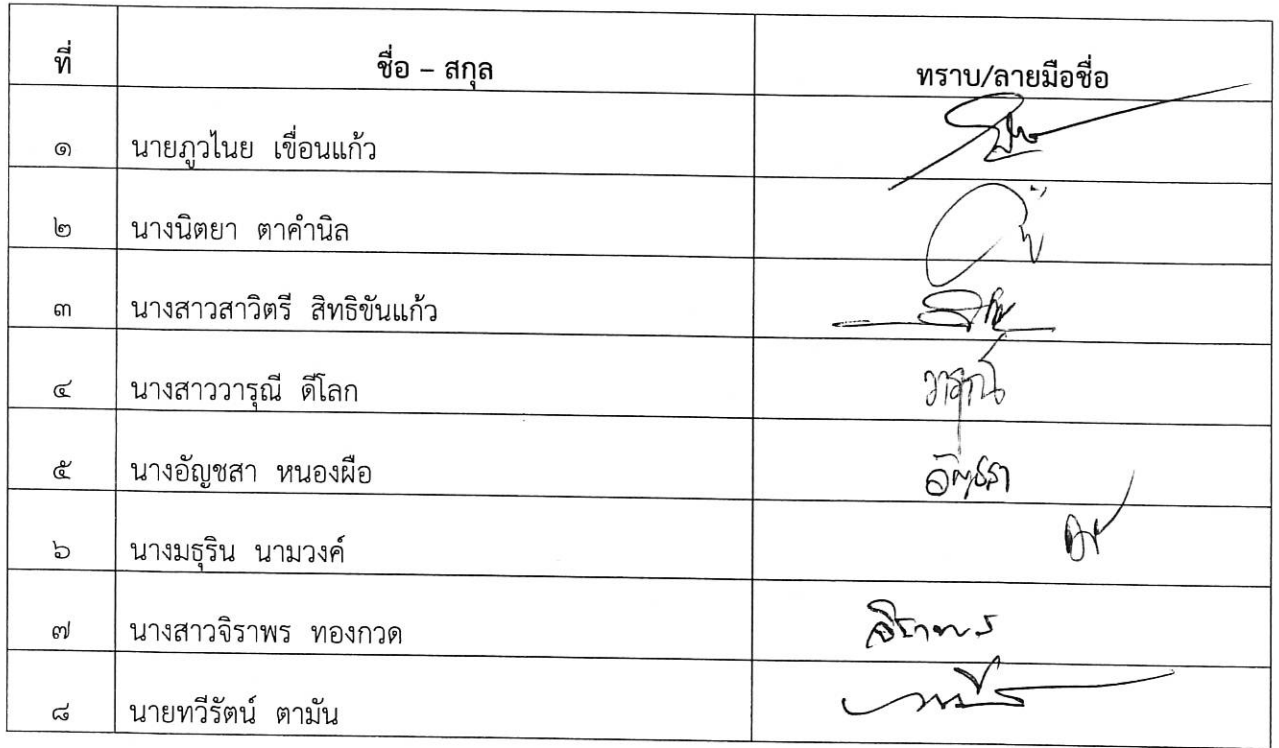 ที่ ชื่อ – สกุล ทราบ/ลายมือชื่อ
๑ นายภูวไนย เขื่อนแก้ว
๒ นางนิตยา ตาคำนิล
๓ นางสาวสาวิตรี สิทธิขันแก้ว
๔ นางสาววารุณี ดีโลก วารุณี
๕ นางอัญชสา หนองผือ อัญชสา
๖ นางมธุริน นามวงค์
๗ นางสาวจิราพร ทองกวด จิราพร
๘ นายทวีรัตน์ ตามัน